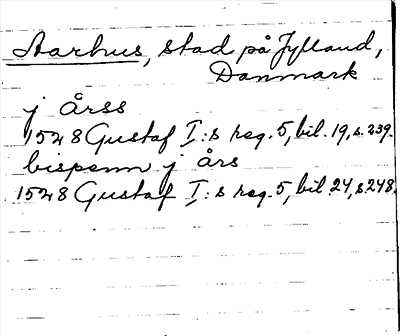 Aarhus, stad på Jylland,
Danmark
j årss
1528 Gustaf I:s reg. 5, bil. 19, s. 239.
bispenn j års
1528 Gustaf I:s reg. 5, bil. 24, s. 248.